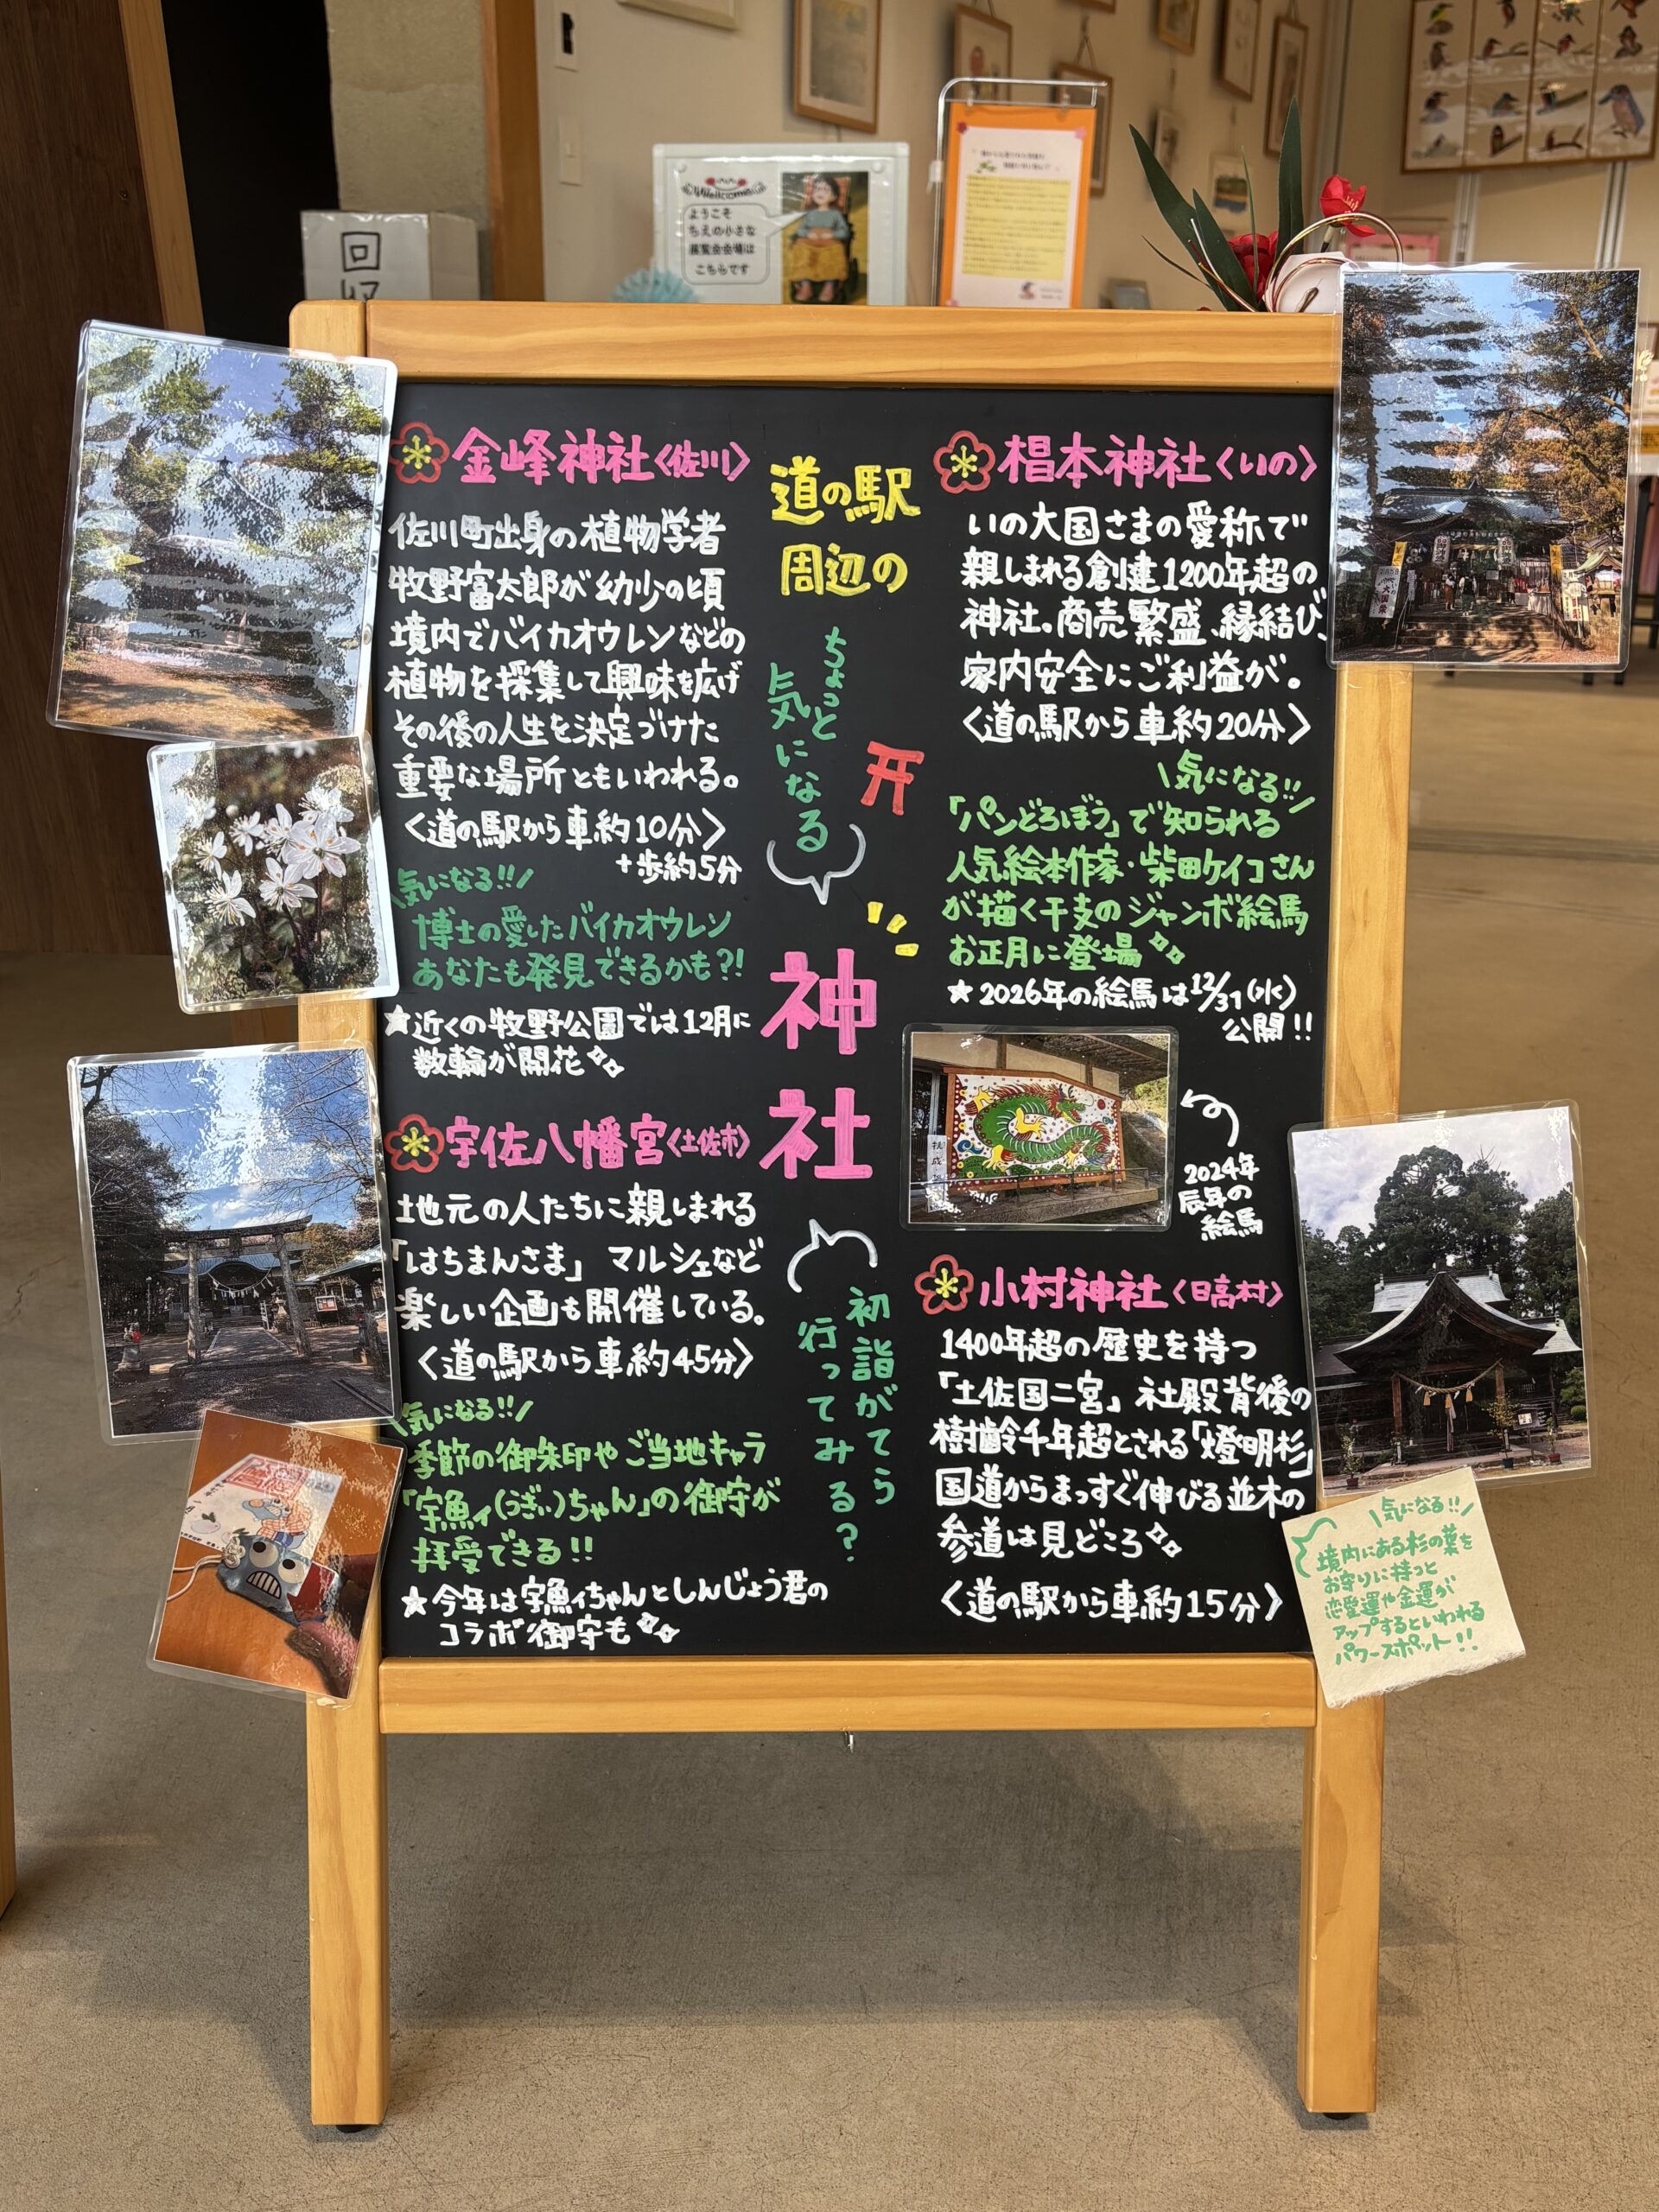 回収
Welcome
ようこそ
ちえの小さな
展覧会会場は
こちらです
道の駅
周辺の
ちょっと
気になる
神社
初詣がてら
行ってみる？
金峰神社〈佐川〉
佐川町出身の植物学者
牧野富太郎が幼少の頃
境内でバイカオウレンなどの
植物を採集して興味を広げ
その後の人生を決定づけた
重要な場所ともいわれる。
〈道の駅から車約10分〉
+歩約5分
気になる!!
博士の愛したバイカオウレン
あなたも発見できるかも?!
★近くの牧野公園では12月に
数輪が開花
宇佐八幡宮〈土佐市〉
地元の人たちに親しまれる
「はちまんさま」 マルシェなど
楽しい企画も開催している。
〈道の駅から車約45分〉
気になる!!
季節の御朱印やご当地キャラ
「宇魚ィ(うぎぃ)ちゃん」の御守が
拝受できる!!
★今年は宇魚ィちゃんとしんじょう君の
コラボ御守も
椙本神社〈いの〉
いの大国さまの愛称で
親しまれる創建1200年超の
神社。商売繁盛、縁結び、
家内安全にご利益が。
〈道の駅から車約20分〉
気になる!!
「パンどろぼう」で知られる
人気絵本作家・柴田ケイコさん
が描く干支のジャンボ絵馬
お正月に登場
★2026年の絵馬は12/31(水)
公開!!
2024年
辰年の
絵馬
小村神社〈日高村〉
1400年超の歴史を持つ
「土佐国二宮」社殿背後の
樹齢千年超とされる「燈明杉」
国道からまっすぐ伸びる並木の
参道は見どころ
〈道の駅から車約15分〉
気になる!!
境内にある杉の葉を
お守りに持つと
恋愛運や金運が
アップするといわれる
パワースポット!!